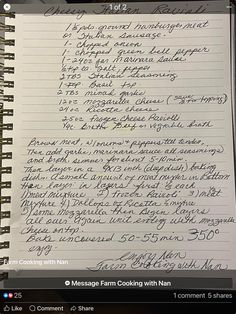 1 of 2
Cheesy Italian Ravioli
1 lb ground hamburger meat
Italian Sausage
1- Chopped onion
1- Chopped green bell pepper
1-24oz jar Marinara Sauce
Salt, pepper
2 TBS Italian Seasoning
1-tsp Basil
2 TBS minced garlic
12oz Mozzarella Cheese
24oz Ricotta Cheese
25oz Frozen Cheese Ravioli
Broth Beef or vegetable broth
Brown meat, onions + peppers till tender,
Then add garlic, marinara sauce all seasonings
and broth simmer for about 5-10 min.
Then layer in a 9x13 inch (deep dish) baking
dish. A small amount of meat mixture on bottom
layer in layers first
meat mixture 2) Frozen Ravioli 3) Meat
Mixture 4) Dollops of Ricotta
5) some Mozzarella then begin layers
all over again until ending with mozzarella
cheese on top.
Bake uncovered 50-55 min 350°
enjoy
Enjoy Nan
Farm Cooking with Nan
Farm Cooking with Nan
Message Farm Cooking with Nan
25
1 comment 5 shares
Like
Comment
Share